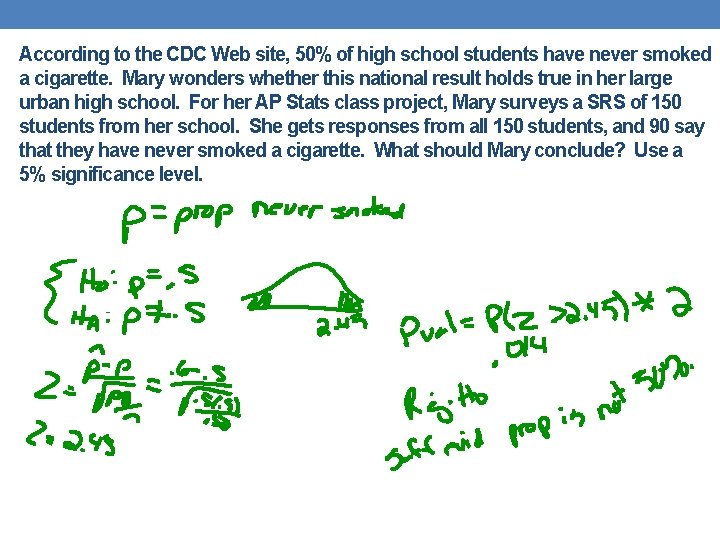 According to the CDC Web site, 50% of high school students have never smoked
a cigarette. Mary wonders whether this national result holds true in her large
urban high school. For her AP Stats class project, Mary surveys a SRS of 150
students from her school. She gets responses from all 150 students, and 90 say
that they have never smoked a cigarette. What should Mary conclude? Use a
5% significance level.
p = prop never smoked
H₀: p = .5
Hₐ: p ≠ .5
2.45
Pval = P(Z > 2.45) * 2
.014
Z = p̂ - p / √(pq/n) = .6 - .5 / √(.5(.5)/150)
Z = 2.45
Rej. H₀
suff evid prop is not 50%.